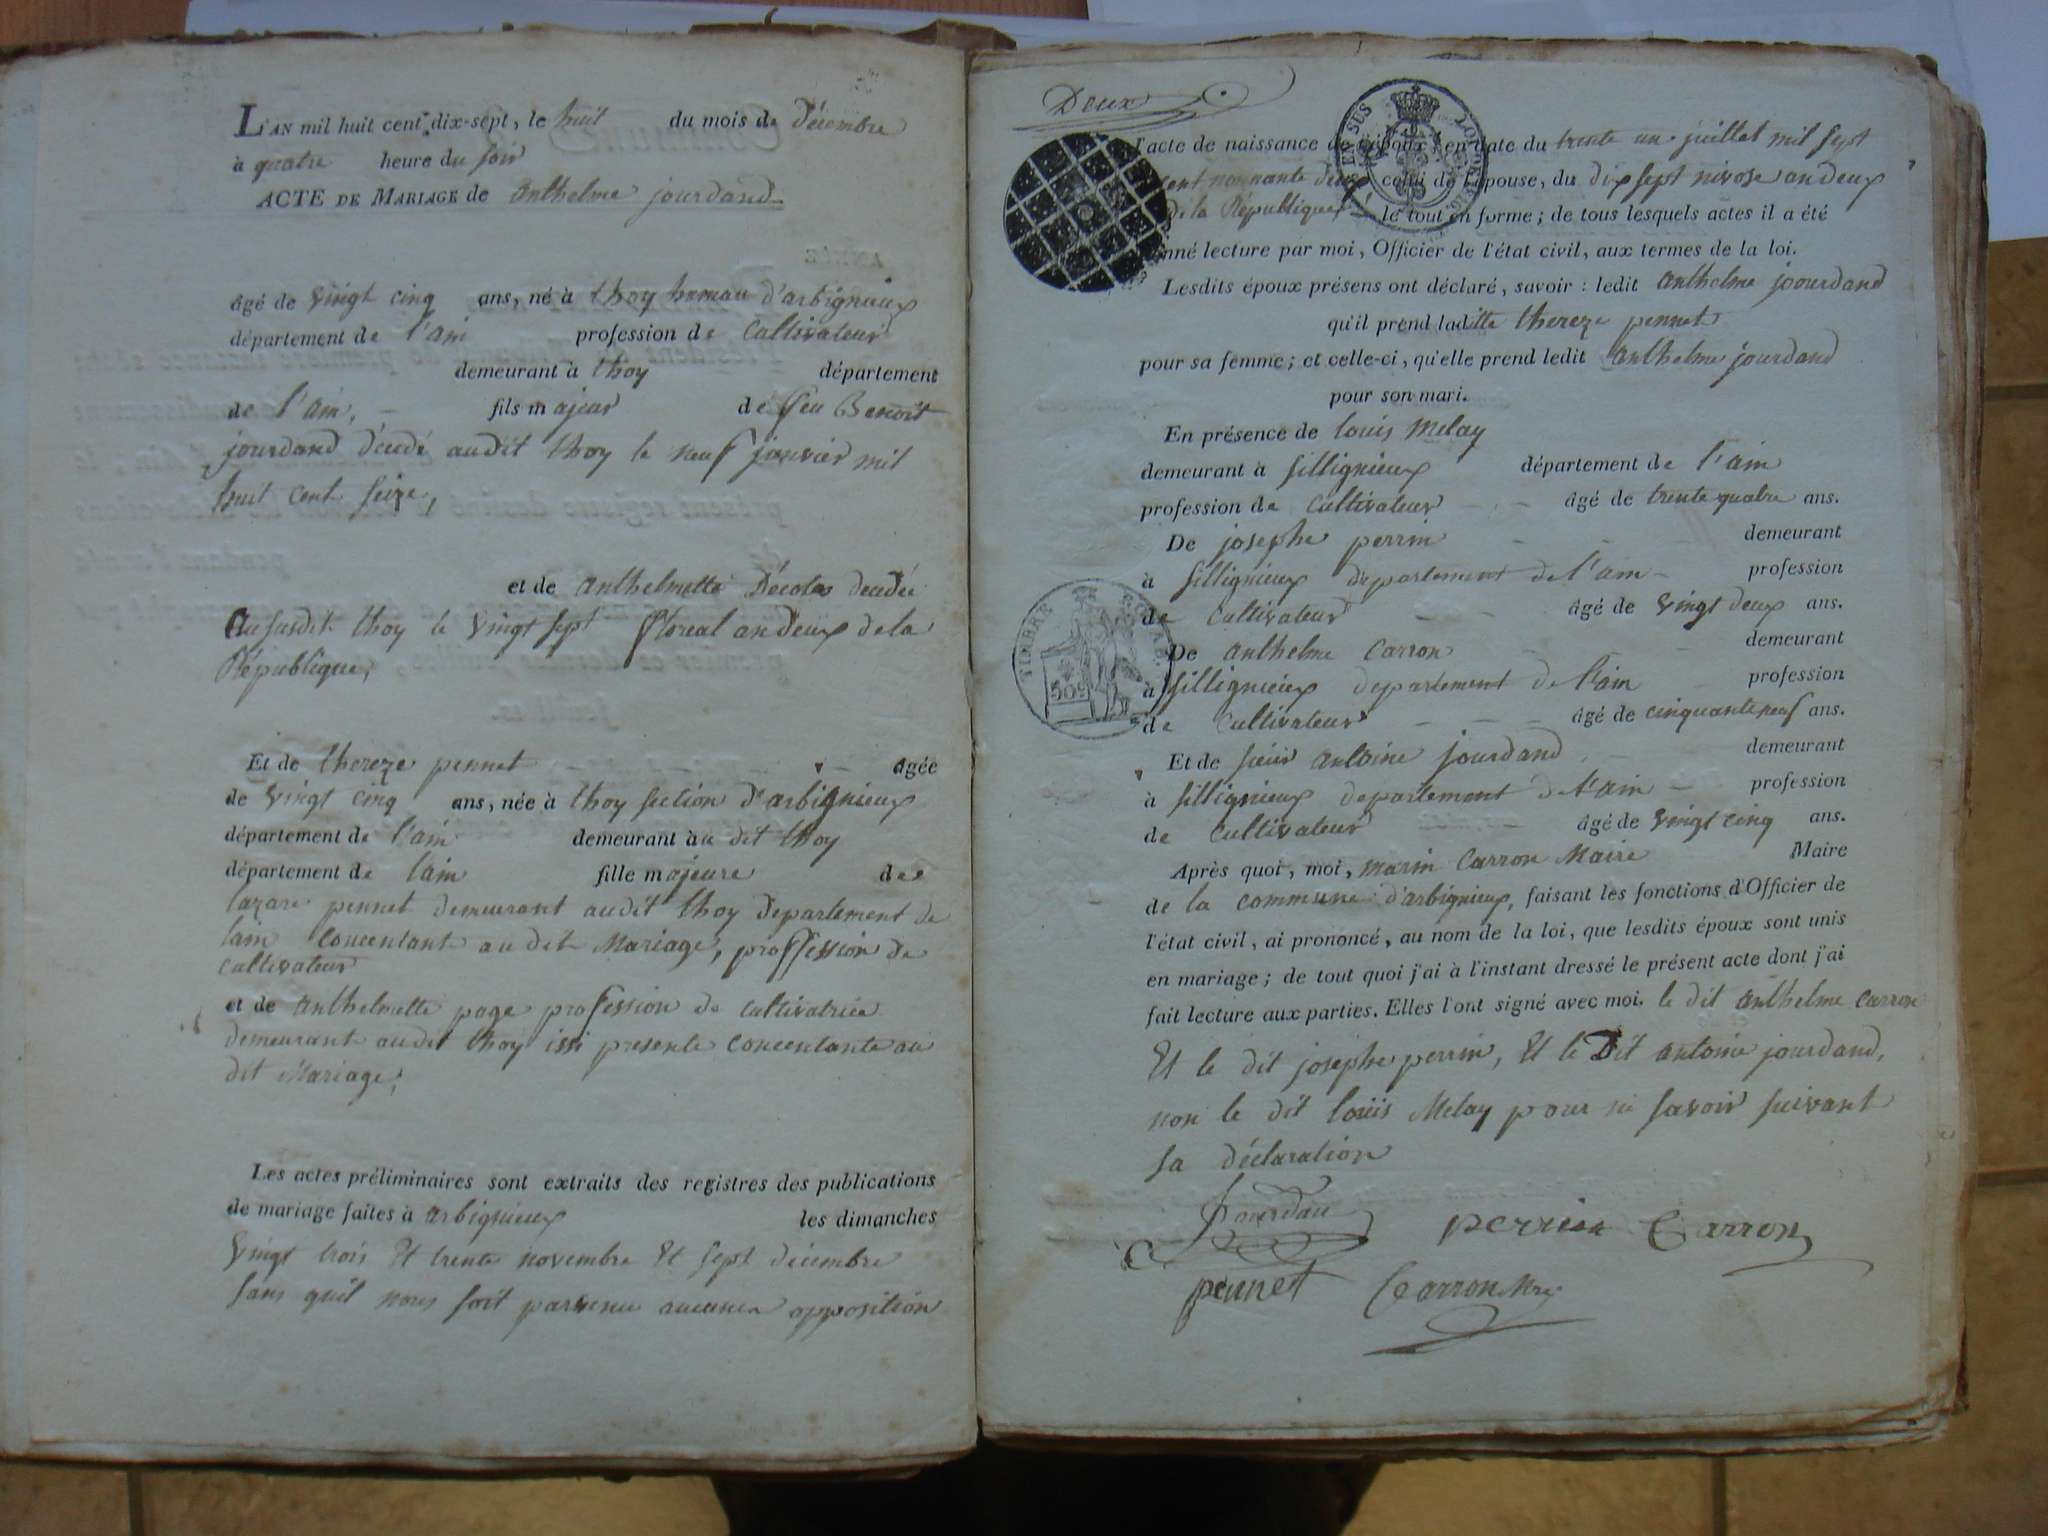 L'AN mil huit cent dix-sept, le huit du mois de décembre
à quatre heure du soir
ACTE DE MARIAGE de anthelme jourdand
âgé de vingt cinq ans, né à thoy hameau d'arbignieux
département de l'ain profession de cultivateur
demeurant à thoy département
de l'ain, fils majeur de feu Benoit
jourdand décédé audit thoy le neuf janvier mil
huit cent seize,
et de anthelmette Décotes decedée
Au susdit thoy le vingt sept floreal an deux de la
République,
Et de thereze pennet agée
de vingt cinq ans, née à thoy section d'arbignieux
département de l'ain demeurant au dit thoy
département de lain fille majeure de
lazare pennet demeurant audit thoy departement de
lain concentant au dit Mariage, proffession de
cultivateur
et de anthelmette page profession de cultivatrice
demeurant audit thoy issi presente concentante au
dit Mariage,
Les actes préliminaires sont extraits des registres des publications
de mariage faites à arbignieux les dimanches
vingt trois et trente novembre et sept décembre
sans quil nous soit parvenu aucunes opposition
Deux
EN SUS
TIMBRE ROYAL
509
l'acte de naissance de l'époux, en date du trente un juillet mil sept
cent nonnante deux celui de l'épouse, du dix sept nivose an deux
de la République le tout en forme; de tous lesquels actes il a été
nné lecture par moi, Officier de l'état civil, aux termes de la loi.
Lesdits époux présens ont déclaré, savoir: ledit anthelme jourdand
qu'il prend laditte thereze pennet
pour sa femme; et celle-ci, qu'elle prend ledit anthelme jourdand
pour son mari.
En présence de louis Melay
demeurant à sillignieux département de l'ain
profession de cultivateur âgé de trente quatre ans.
De josephe perrin demeurant
à sillignieux departement de l'ain profession
de cultivateur âgé de vingt deux ans.
De anthelme Carron demeurant
à sillignieux departement de l'ain profession
de cultivateur âgé de cinquante neuf ans.
Et de sieur antoine jourdand demeurant
à sillignieux departement de l'ain profession
de cultivateur âgé de vingt cinq ans.
Après quoi, moi, marin Carron Maire Maire
de la commune d'arbignieux, faisant les fonctions d'Officier de
l'état civil, ai prononcé, au nom de la loi, que lesdits époux sont unis
en mariage; de tout quoi j'ai à l'instant dressé le présent acte dont j'ai
fait lecture aux parties. Elles l'ont signé avec moi. le dit anthelme carron
Et le dit josephe perrin, Et le Dit antoine jourdand,
non le dit louis Melay pour ne savoir suivant
sa déclaration
Jourdan perrin Carron
pennet Carron Mre